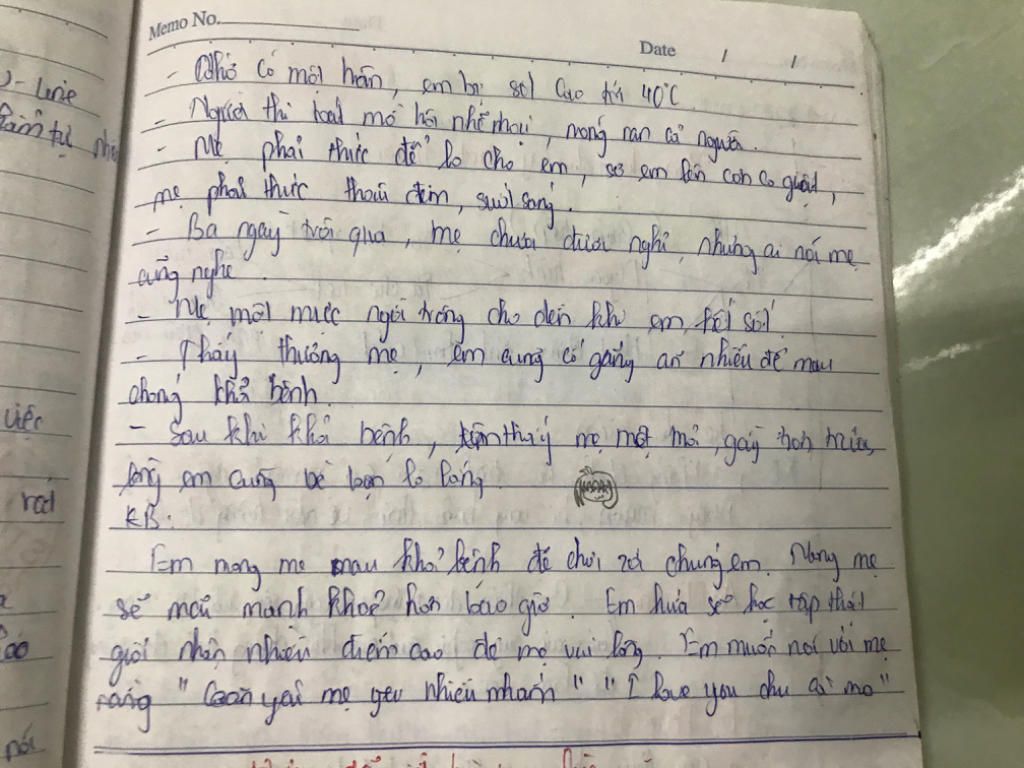 Memo No.
Date / /
- Nhớ có một hôm, em bị sốt cao tới 40°C
- Người thì toát mồ hôi nhễ nhại, nóng ran cả người.
- Mẹ phải thức để lo cho em, sợ em lên cơn co giật,
mẹ phải thức thâu đêm, suốt sáng.
- Ba ngày trôi qua, mẹ chưa được nghỉ, nhưng ai nói mẹ
cũng nghe.
- Mẹ một mực ngồi trông cho đến khi em hết sốt
- Thấy thương mẹ, em cung cố gắng ăn nhiều để mau
chóng khỏi bệnh.
- Sau khi khỏi bệnh, thấy mẹ mệt mỏi, gầy hơn trước,
lòng em cung lo lắng.
KB:
Em mong mẹ mau khỏi bệnh để chơi với chúng em. Mong mẹ
sẽ mãi mạnh khoẻ hơn bao giờ. Em hứa sẽ học tập thật
giỏi nhận nhiều điểm cao để mẹ vui lòng. Em muốn nói với mẹ
rằng " yêu mẹ nhiều " " I love you
việc
nói